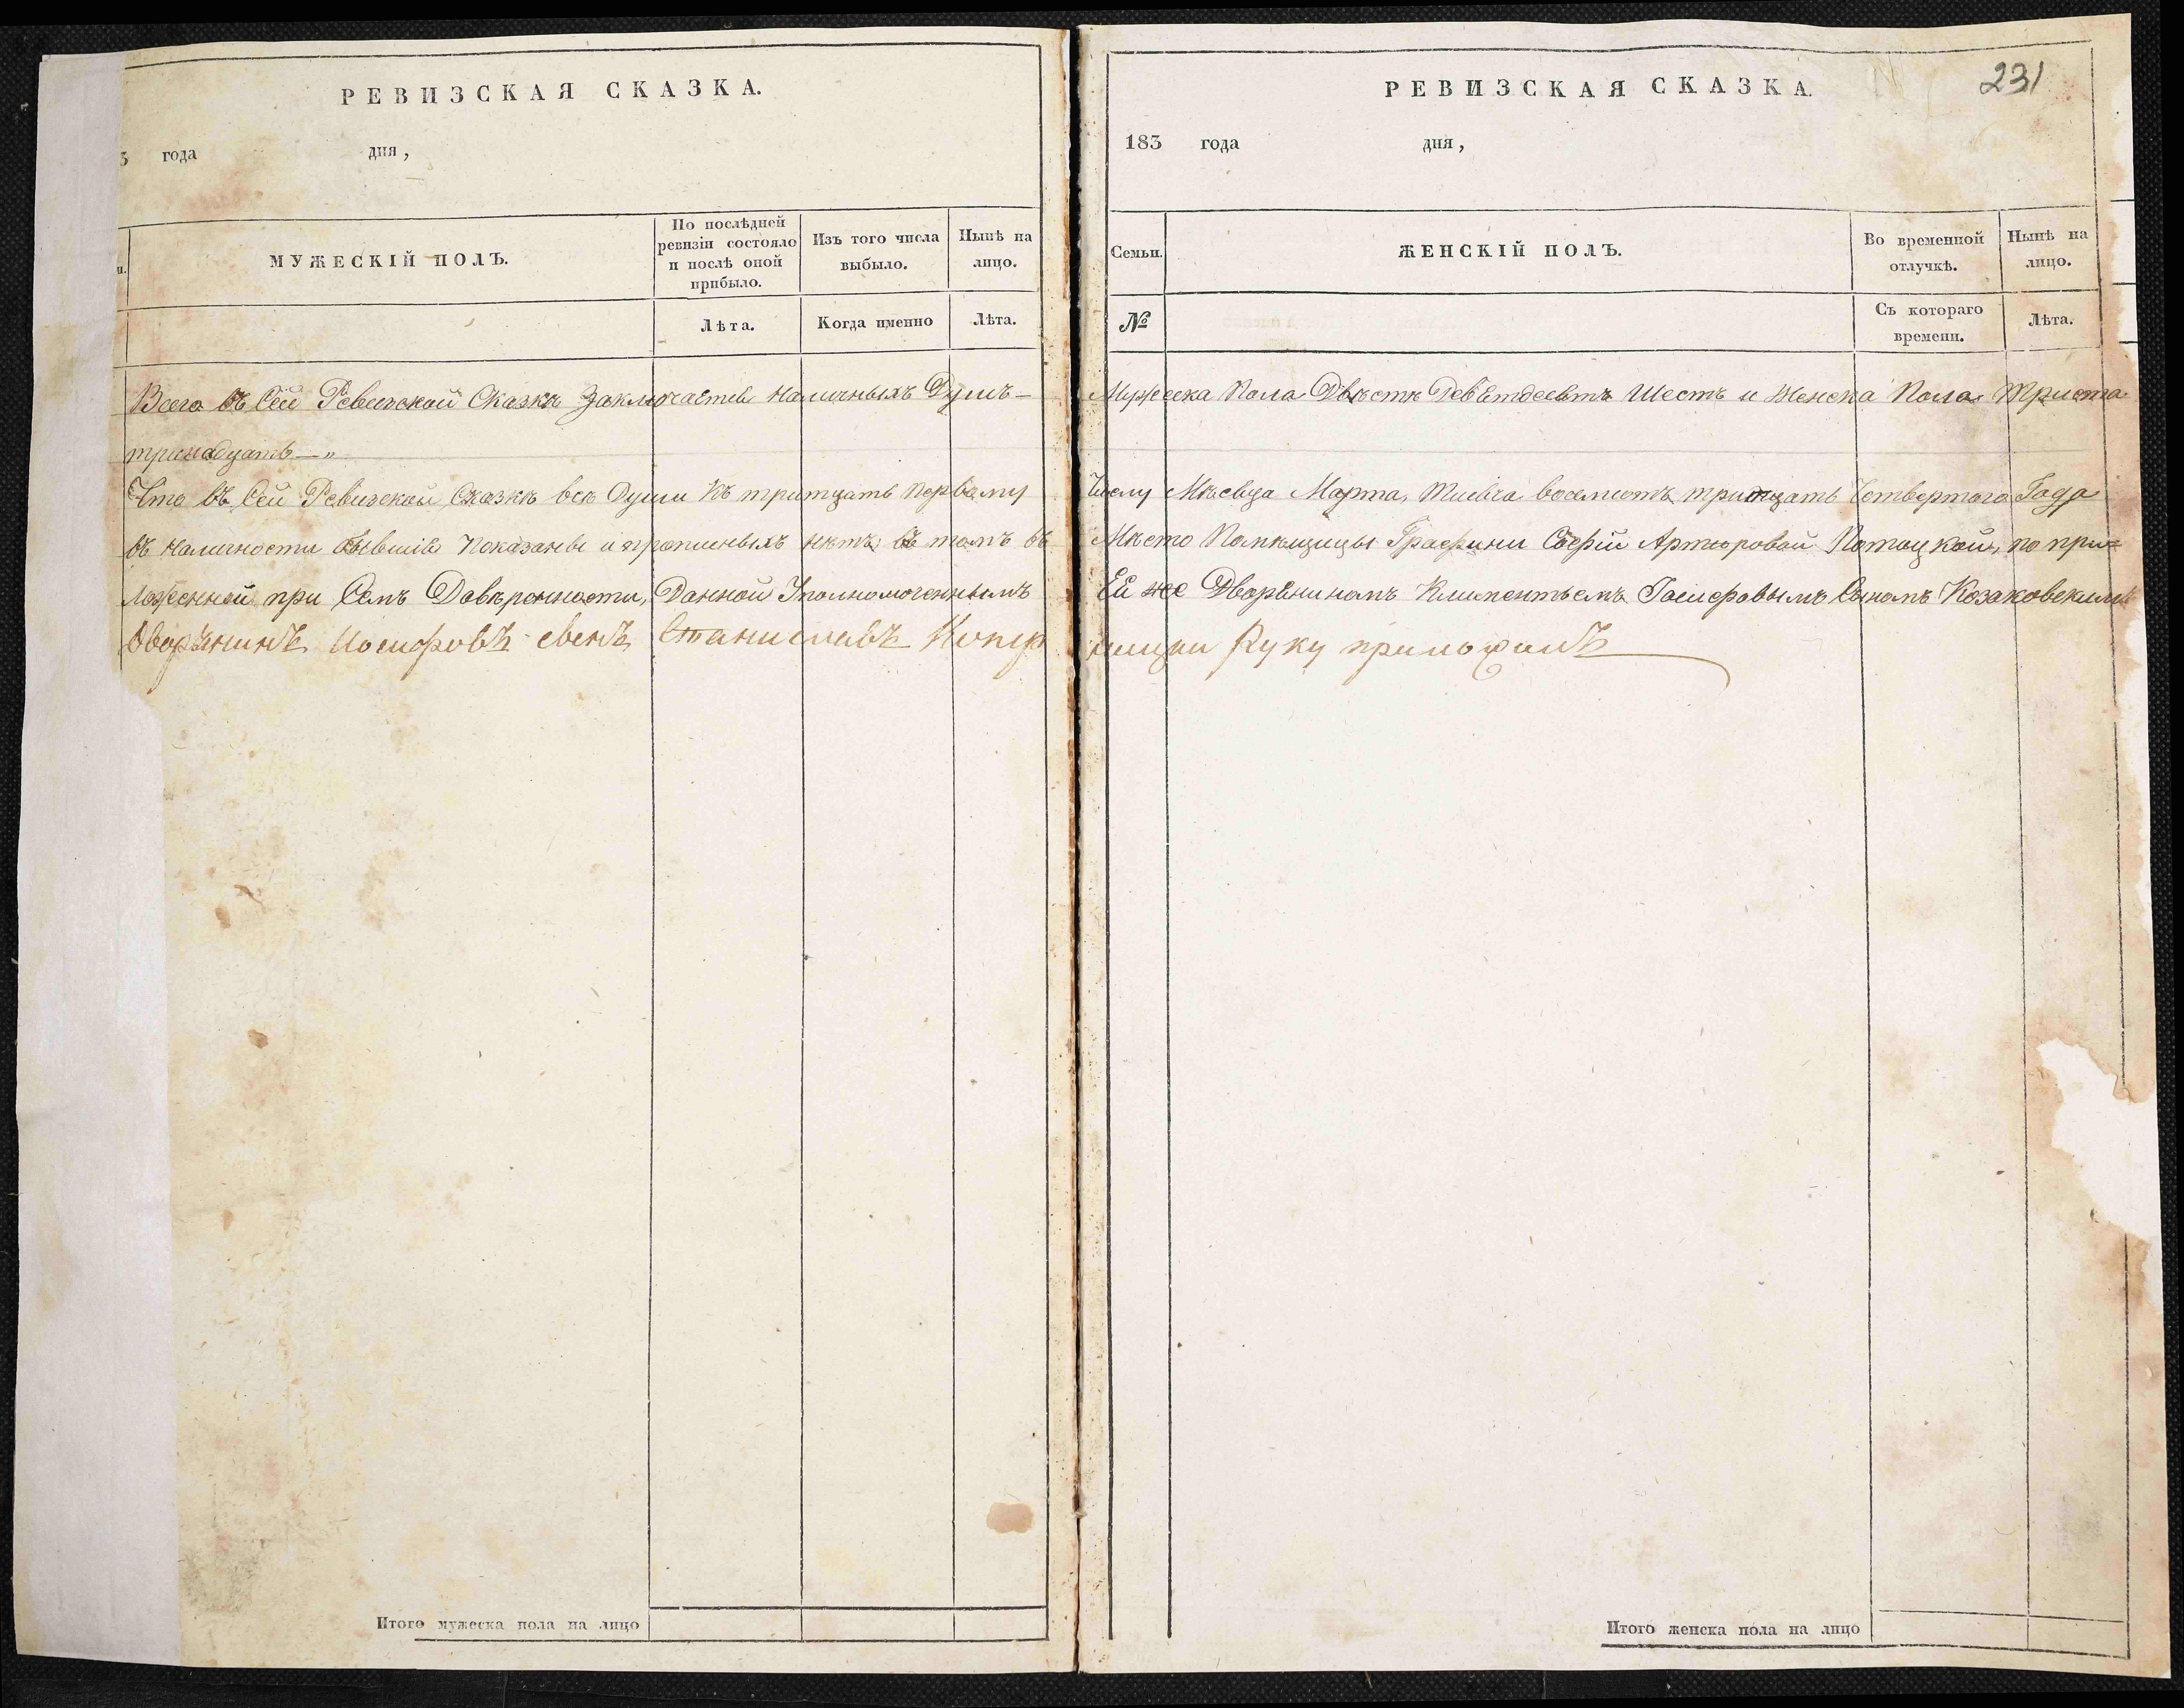 РЕВИЗСКАЯ СКАЗКА.
3 года дня,
МУЖЕСКІЙ ПОЛЪ.
По послѣдней ревизіи состояло и послѣ оной прибыло.
Изъ того числа выбыло.
Нынѣ на лицо.
Лѣта.
Когда именно
Лѣта.
Всего въ Сей Ревизской Сказкѣ Заключается Наличныхъ Душъ —
тринадцать —„
Что въ Сей Ревизской Сказкѣ всѣ Души Къ тритцать Первому
въ Наличности бывшія Показаны и прописныхъ нѣтъ, въ томъ въ
ложенной при Семъ Довѣренности, Данной Уполномоченнымъ
Дворянинъ Иосифовъ сынъ Станиславъ
Итого мужеска пола на лицо
231
РЕВИЗСКАЯ СКАЗКА.
183 года дня,
Семьи.
ЖЕНСКІЙ ПОЛЪ.
Во временной отлучкѣ.
Нынѣ на лицо.
№
Съ котораго времени.
Лѣта.
Мужеска Пола Двѣстѣ Девятдесятъ Шесть и Женска Пола Триста
Числу Мѣсяца Марта, Тисяча восемсотъ тридцать Четвертого Года
Мѣсто Помѣщицы Графини Софіи Артюровой Потоцкой, по при=
Ея же Дворяниномъ Климентьемъ Сыномъ Козаковскимъ
Руку приложилъ
Итого женска пола на лицо